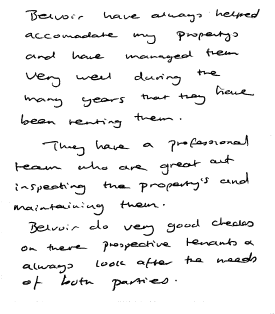 Belvoir have always helped
accomadate my propertys
and have managed them
very well during the
many years that they have
been renting them.
They have a professional
team who are great at
inspecting the property's and
maintaining them.
Belvoir do very good checks
on there prospective tenants &
always look after the needs
of both parties.